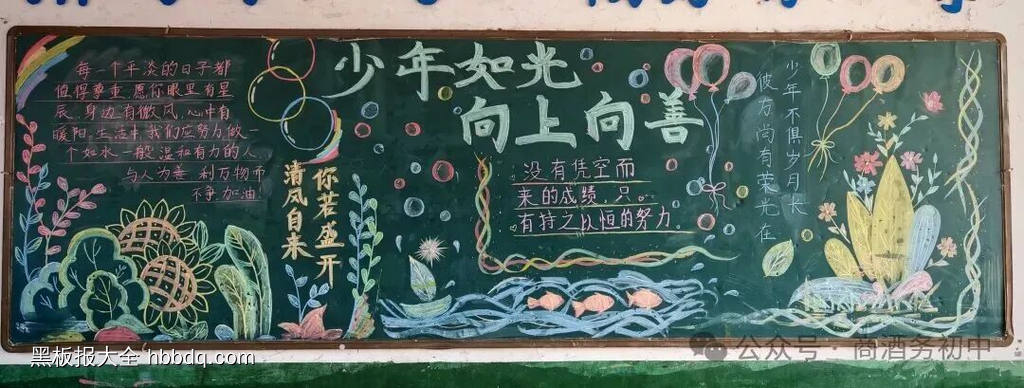 每一个平淡的日子都
值得尊重,愿你眼里有星
辰、身边有微风,心中有
暖阳。生活中,我们应努力做一
个如水一般温和有力的人
与人为善 利万物而
不争 加油
你若盛开
清风自来
少年如光
向上向善
没有凭空而
来的成绩,只。
有持之以恒的努力。
少年不惧岁月长
彼方尚有荣光在
黑板报大全 hbbdq.com
公众号 · 商酒务初中